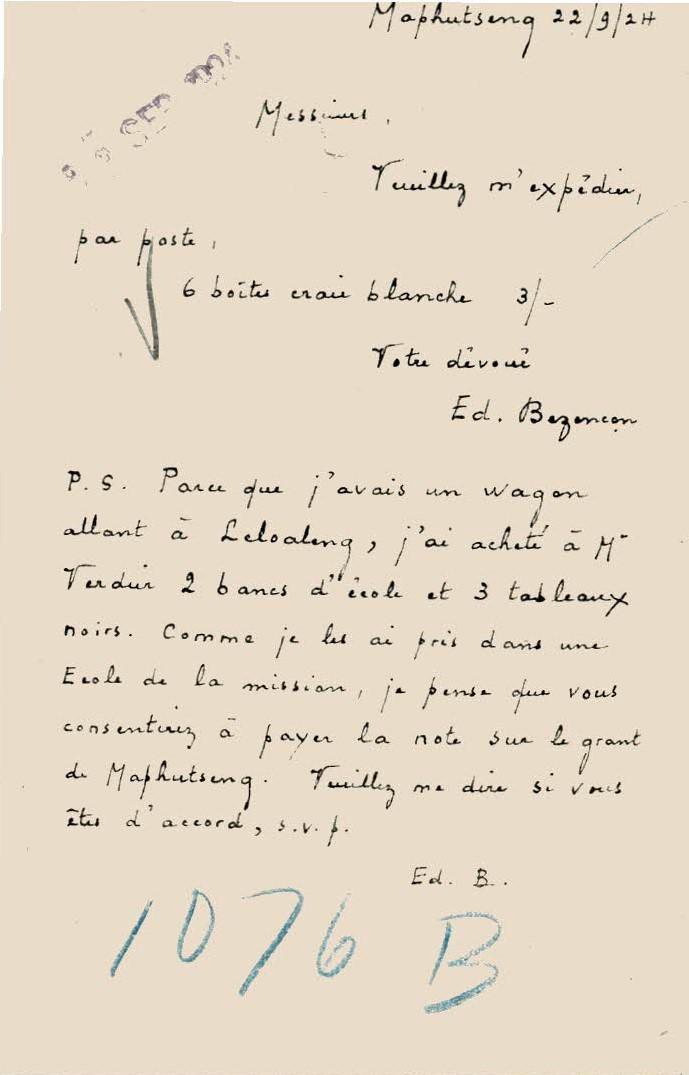 Maphutseng 22/9/24
25 SEP 1924
Messieurs,
Veuillez m'expédier,
par poste,
6 boîtes craie blanche 3/-
Votre dévoué
Ed. Bezencon
P. S. Parce que j'avais un wagon
allant à Leloaleng, j'ai acheté à Mr
Verdier 2 bancs d'école et 3 tableaux
noirs. Comme je les ai pris dans une
Ecole de la mission, je pense que vous
consentirez à payer la note sur le grant
de Maphutseng. Veuillez me dire si vous
êtes d'accord, s.v.p.
Ed. B.
1076 B